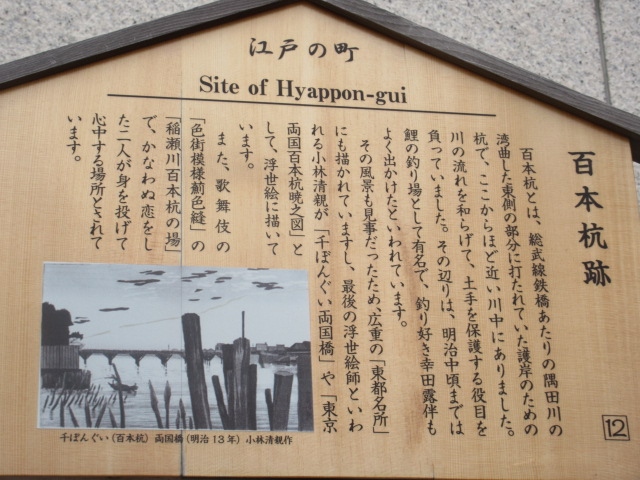 江戸の町
Site of Hyappon-gui
百本杭跡
百本杭とは、総武線鉄橋あたりの隅田川の
湾曲した東側の部分に打たれていた護岸のための
杭で、ここからほど近い川中にありました。
川の流れを和らげて、土手を保護する役目を
負っていました。その辺りは、明治中頃までは
鯉の釣り場として有名で、釣り好き幸田露伴も
よく出かけたといわれています。
その風景も見事だったため、広重の「東都名所」
にも描かれていますし、最後の浮世絵師といわ
れる小林清親が「千ぼんぐい両国橋」や「東京
両国百本杭暁之図」と
して、浮世絵に描いて
います。
また、歌舞伎の
「色街模様薊色縫」の
「稲瀬川百本杭の場」
で、かなわぬ恋をし
た二人が身を投げて
心中する場所とされて
います。
千ぼんぐい(百本杭) 両国橋(明治13年) 小林清親作
12